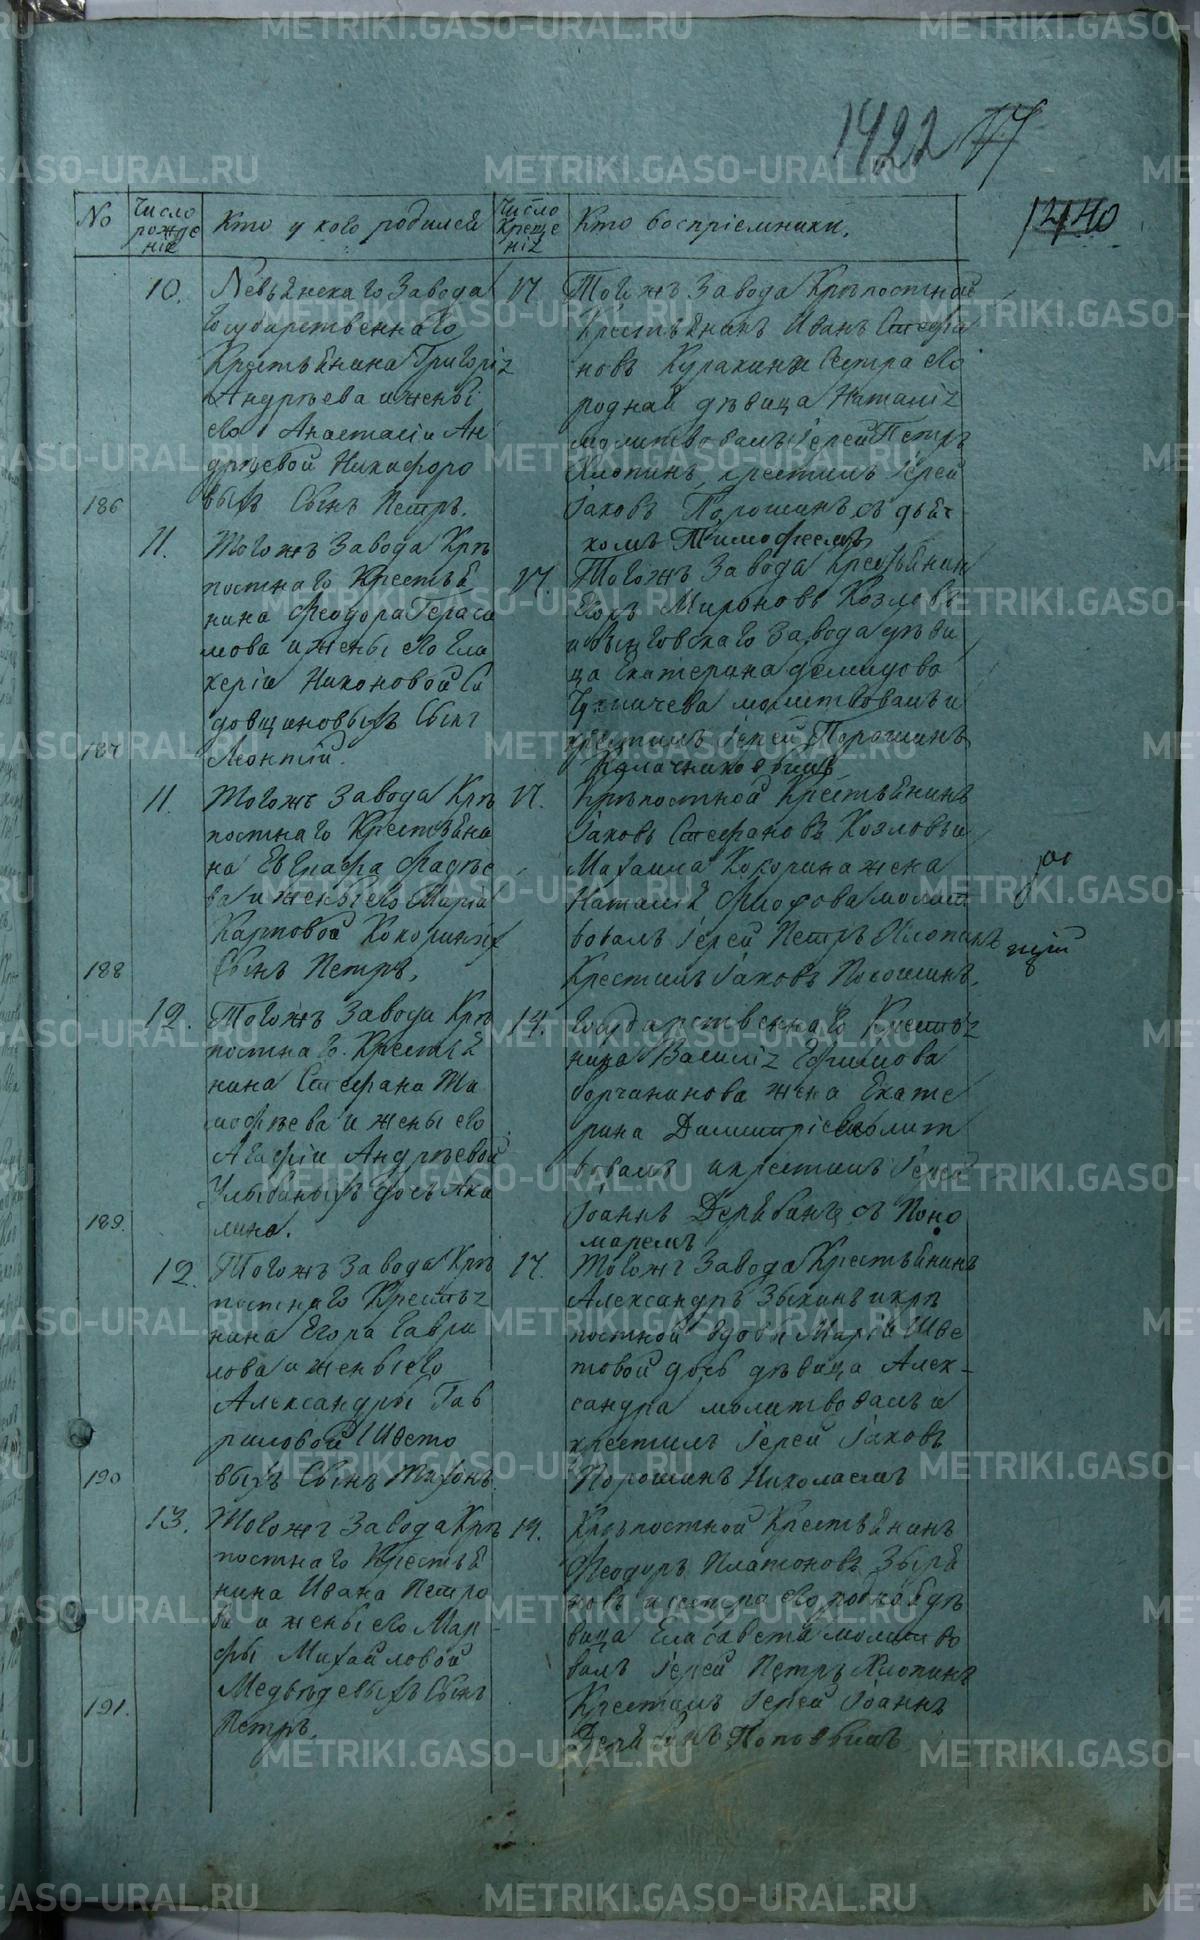 1422 77
1440
No
Число рожде нія
Кто у кого родился
Число Креще нія
Кто воспріемники.
186
10.
Невьянскаго Завода
Государственнаго
Крестьянина Григорія
Андреева и жены
его Анастасіи Ан
дреевой Никифоро
выхъ Сынъ Петръ.
17
Тогожъ Завода Крѣпостной
Крестьянинъ Иванъ Стефа
новъ Куракинъ и Сестра его
родная дѣвица Наталія
молитвовалъ Іерей Петръ
Хлопинъ, крестилъ Іерей
Іаковъ Порошинъ съ дьяч
комъ Тимофеемъ
187
11.
Тогожъ Завода Крѣ
постнаго Крестья
нина Феодора Гераси
мова и жены его Гли
керіи Никоновой Са
довщиковыхъ Сынъ
Леонтій.
17.
Тогожъ Завода Крестьянин
Егоръ Мироновъ Козловъ
и Завода дѣви
ца Екатерина Демидова
молитвовалъ и
крестилъ Іерей Порошинъ
Калачниковымъ
188
11.
Тогожъ Завода Крѣ
постнаго Крестьяни
на Евграфа Фадѣе
ва и жены его Маріи
Карповой Кокориныхъ
Сынъ Петръ.
17.
Крѣпостной Крестьянинъ
Іаковъ Стефановъ Козловъ и
Михаила Кокорина жена
Наталія молит
вовалъ Іерей Петръ Хлопинъ
Крестилъ Іаковъ Порошинъ.
189.
12.
Тогожъ Завода Крѣ
постнаго Крестья
нина Стефана Ти
мофѣева и жены его
Агафіи Андреевой
Улыбиныхъ дочь Аки
лина.
14.
Государственнаго Крестья
нина Василія Ефимова
Борчанинова жена Екате
рина Димитріева молит
вовалъ и крестилъ Іерей
Іоаннъ Дерябинъ съ Поно
маремъ
190
12.
Тогожъ Завода Крѣ
постнаго Крестья
нина Егора Гаври
лова и жены его
Александры Гав
риловой Швецо
выхъ Сынъ Тихонъ.
17.
Тогожъ Завода Крестьянинъ
Александръ Зыкинъ и крѣ
постной вдовы Маріи Шве
цовой дочь дѣвица Алек-
сандра молитвовалъ и
крестилъ Іерей Іаковъ
Порошинъ Николаемъ
191.
13.
Тогожъ Завода Крѣ
постнаго Крестья
нина Ивана Петро
ва и жены его Мар
фы Михайловой
Медвѣдевыхъ Сынъ
Петръ.
14.
Крѣпостной Крестьянинъ
Феодоръ Платоновъ Зыря
новъ и сестра его родная дѣ
вица Елисавета молитво
валъ Іерей Петръ Хлопинъ
Крестилъ Іерей Іоаннъ
Дерябинъ Поповымъ
METRIKI.GASO-URAL.RU